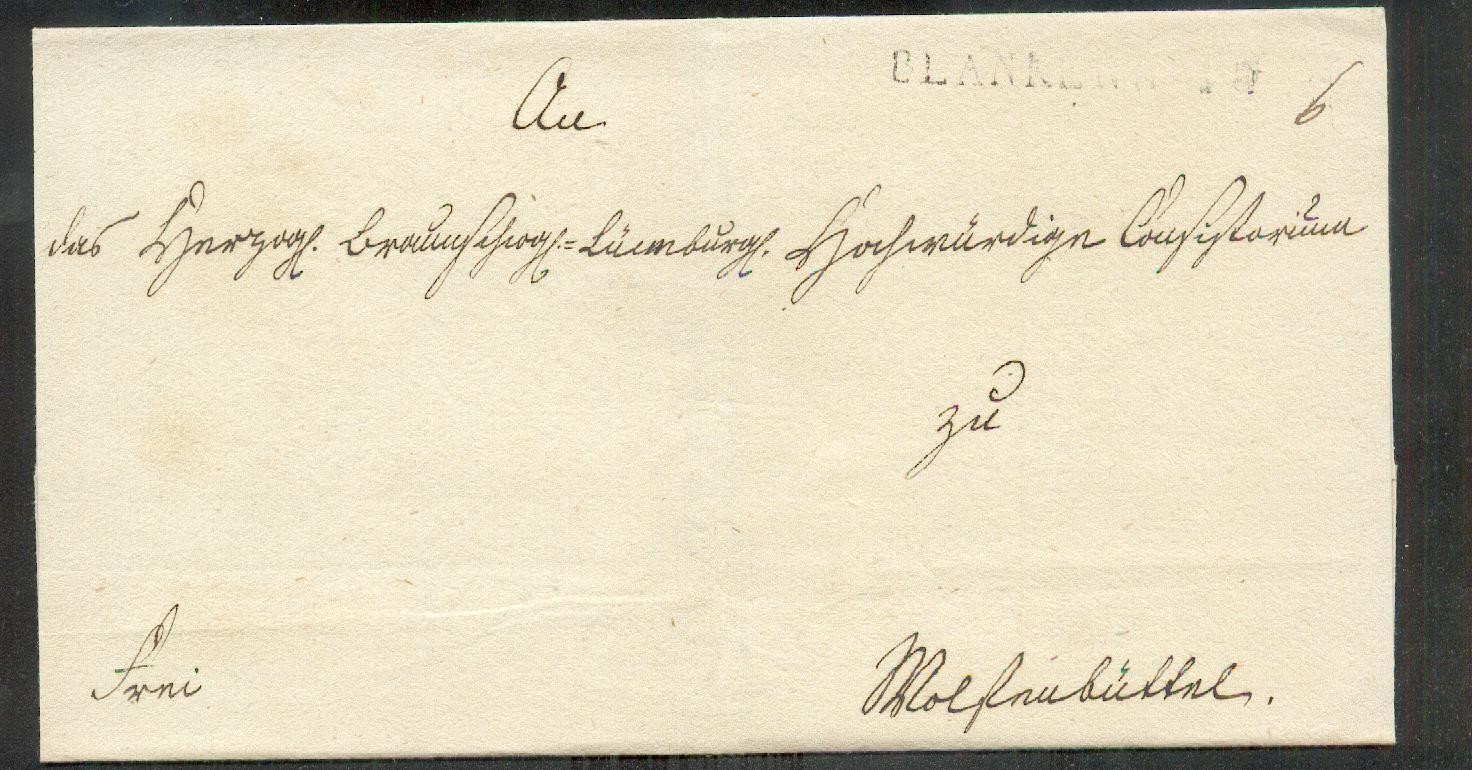 An
6
das Herzogl. Braunschwgl.=Lüneburgl. Hochwürdige Consistorium
zu
Frei
Wolfenbüttel.